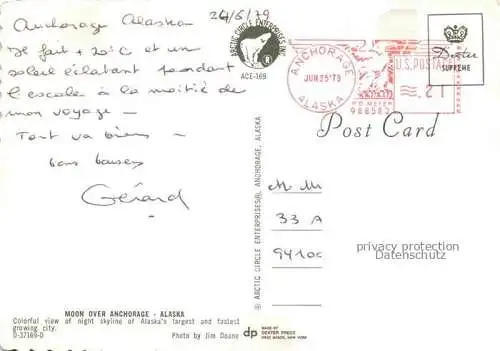 Anchorage Alaska
26/6/79
Il fait + 20°C et un
soleil éclatant pendant
l'escale à la moitié de
mon voyage -
Tout va bien -
bons baisers
Gérard
ARCTIC CIRCLE ENTERPRISES INC.
ACE-169
ANCHORAGE
JUN 25'79
ALASKA
U.S. POSTAGE
.21
P.O. METER
988582
Dexter
SUPREME
Post Card
M. M
33 A
94100
privacy protection
Datenschutz
© ARCTIC CIRCLE ENTERPRISES, ANCHORAGE, ALASKA
MOON OVER ANCHORAGE - ALASKA
Colorful view of night skyline of Alaska's largest and fastest
growing city.
D-37169-D
Photo by Jim Doane
dp
MADE BY
DEXTER PRESS
WEST NYACK, NEW YORK